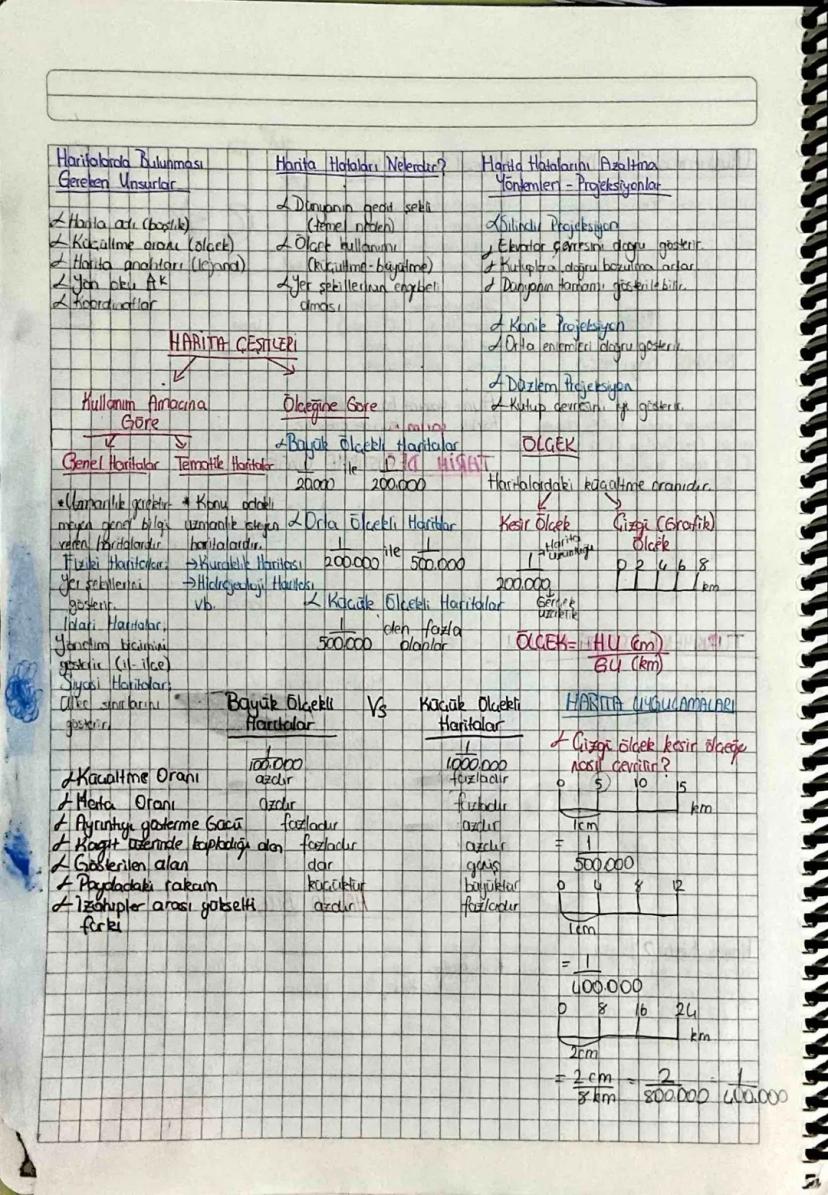 Haritalarda Bulunması
Gereken Unsurlar
Harita adı (başlık)
Küçültme oranı (ölçek)
Harita anahtarı (lejand)
Yön oku
Koordinatlar
Harita Hataları Nelerdir?
Dünyanın geoid şekli
(temel neden)
Ölçek kullanımı
(küçültme-büyütme)
Yer şekillerinin engebeli
olması
Harita Hatalarını Azaltma
Yöntemleri - Projeksiyonlar
Silindir Projeksiyon
Ekvator çevresini doğru gösterir.
Kutuplara doğru bozulma artar
Dünyanın tamamı gösterilebilir.
Konik Projeksiyon
Orta enlemleri doğru gösterir.
Düzlem Projeksiyon
Kutup çevresini iyi gösterir.
HARİTA ÇEŞİTLERİ
Kullanım Amacına
Göre
Genel Haritalar Tematik Haritalar
* Uzmanlık gerektir-
meyen genel bilgi
veren haritalardır
Fiziki Haritalar:
Yer şekillerini
gösterir.
İdari Haritalar:
Yönetim biçimini
gösterir (il-ilçe)
Siyasi Haritalar:
Ülke sınırlarını
gösterir.
* Konu odaklı
uzmanlık isteyen
haritalardır.
→ Kuraklık Haritası
→ Hidrojeoloji Haritası
vb.
Ölçeğine Göre
Büyük Ölçekli Haritalar
1/20.000 ile 1/200.000
Orta Ölçekli Haritlar
1/200.000 ile 1/500.000
Küçük Ölçekli Haritalar
1/500.000 den fazla
olanlar
ÖLÇEK
Haritalardaki küçültme oranıdır.
Kesir Ölçek
1 → Harita uzunluğu
200.000
Gerçek
uzunluk
Çizgi (Grafik)
Ölçek
0 2 4 6 8
km
ÖLÇEK= HU (cm)
GU (km)
Büyük Ölçekli Vs Küçük Ölçekli
Haritalar Haritalar
1/100.000 1/1000.000
Küçültme Oranı azdır fazladır
Hata Oranı azdır fazladır
Ayrıntıyı gösterme Gücü fazladır azdır
Kağıt üzerinde kapladığı alan fazladır azdır
Gösterilen alan dar geniş
Paydadaki rakam küçüktür büyüktür
İzohipler arası yükselti azdır fazladır
farkı
HARİTA UYGULAMALARI
Çizgi ölçek kesir ölçeğe
nasıl çevrilir?
0 5 10 15
km
1cm
= 1/500.000
0 4 8 12
1cm
= 1/400.000
0 8 16 24
km
2cm
= 2 cm/8 km = 2/800.000 = 1/400.000